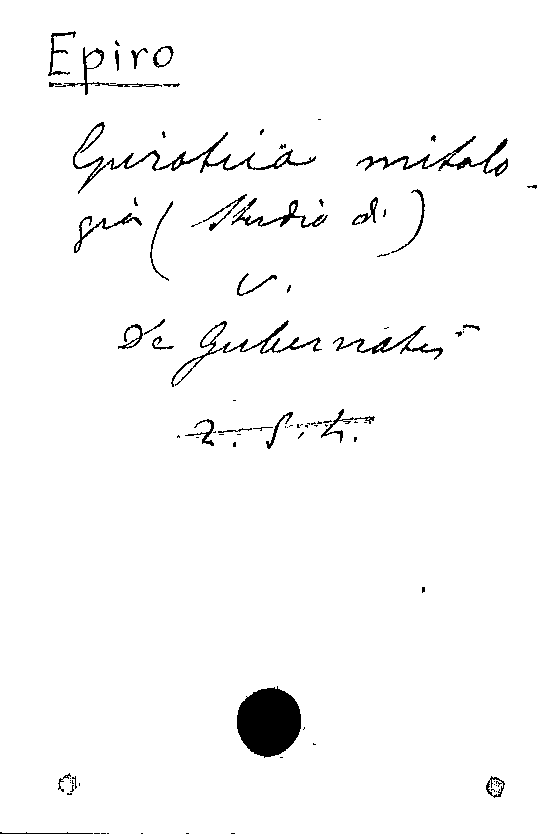 Epiro
Epirotica mitolo
gia (Studio di)
V.
De Gubernatis
2. S. L.